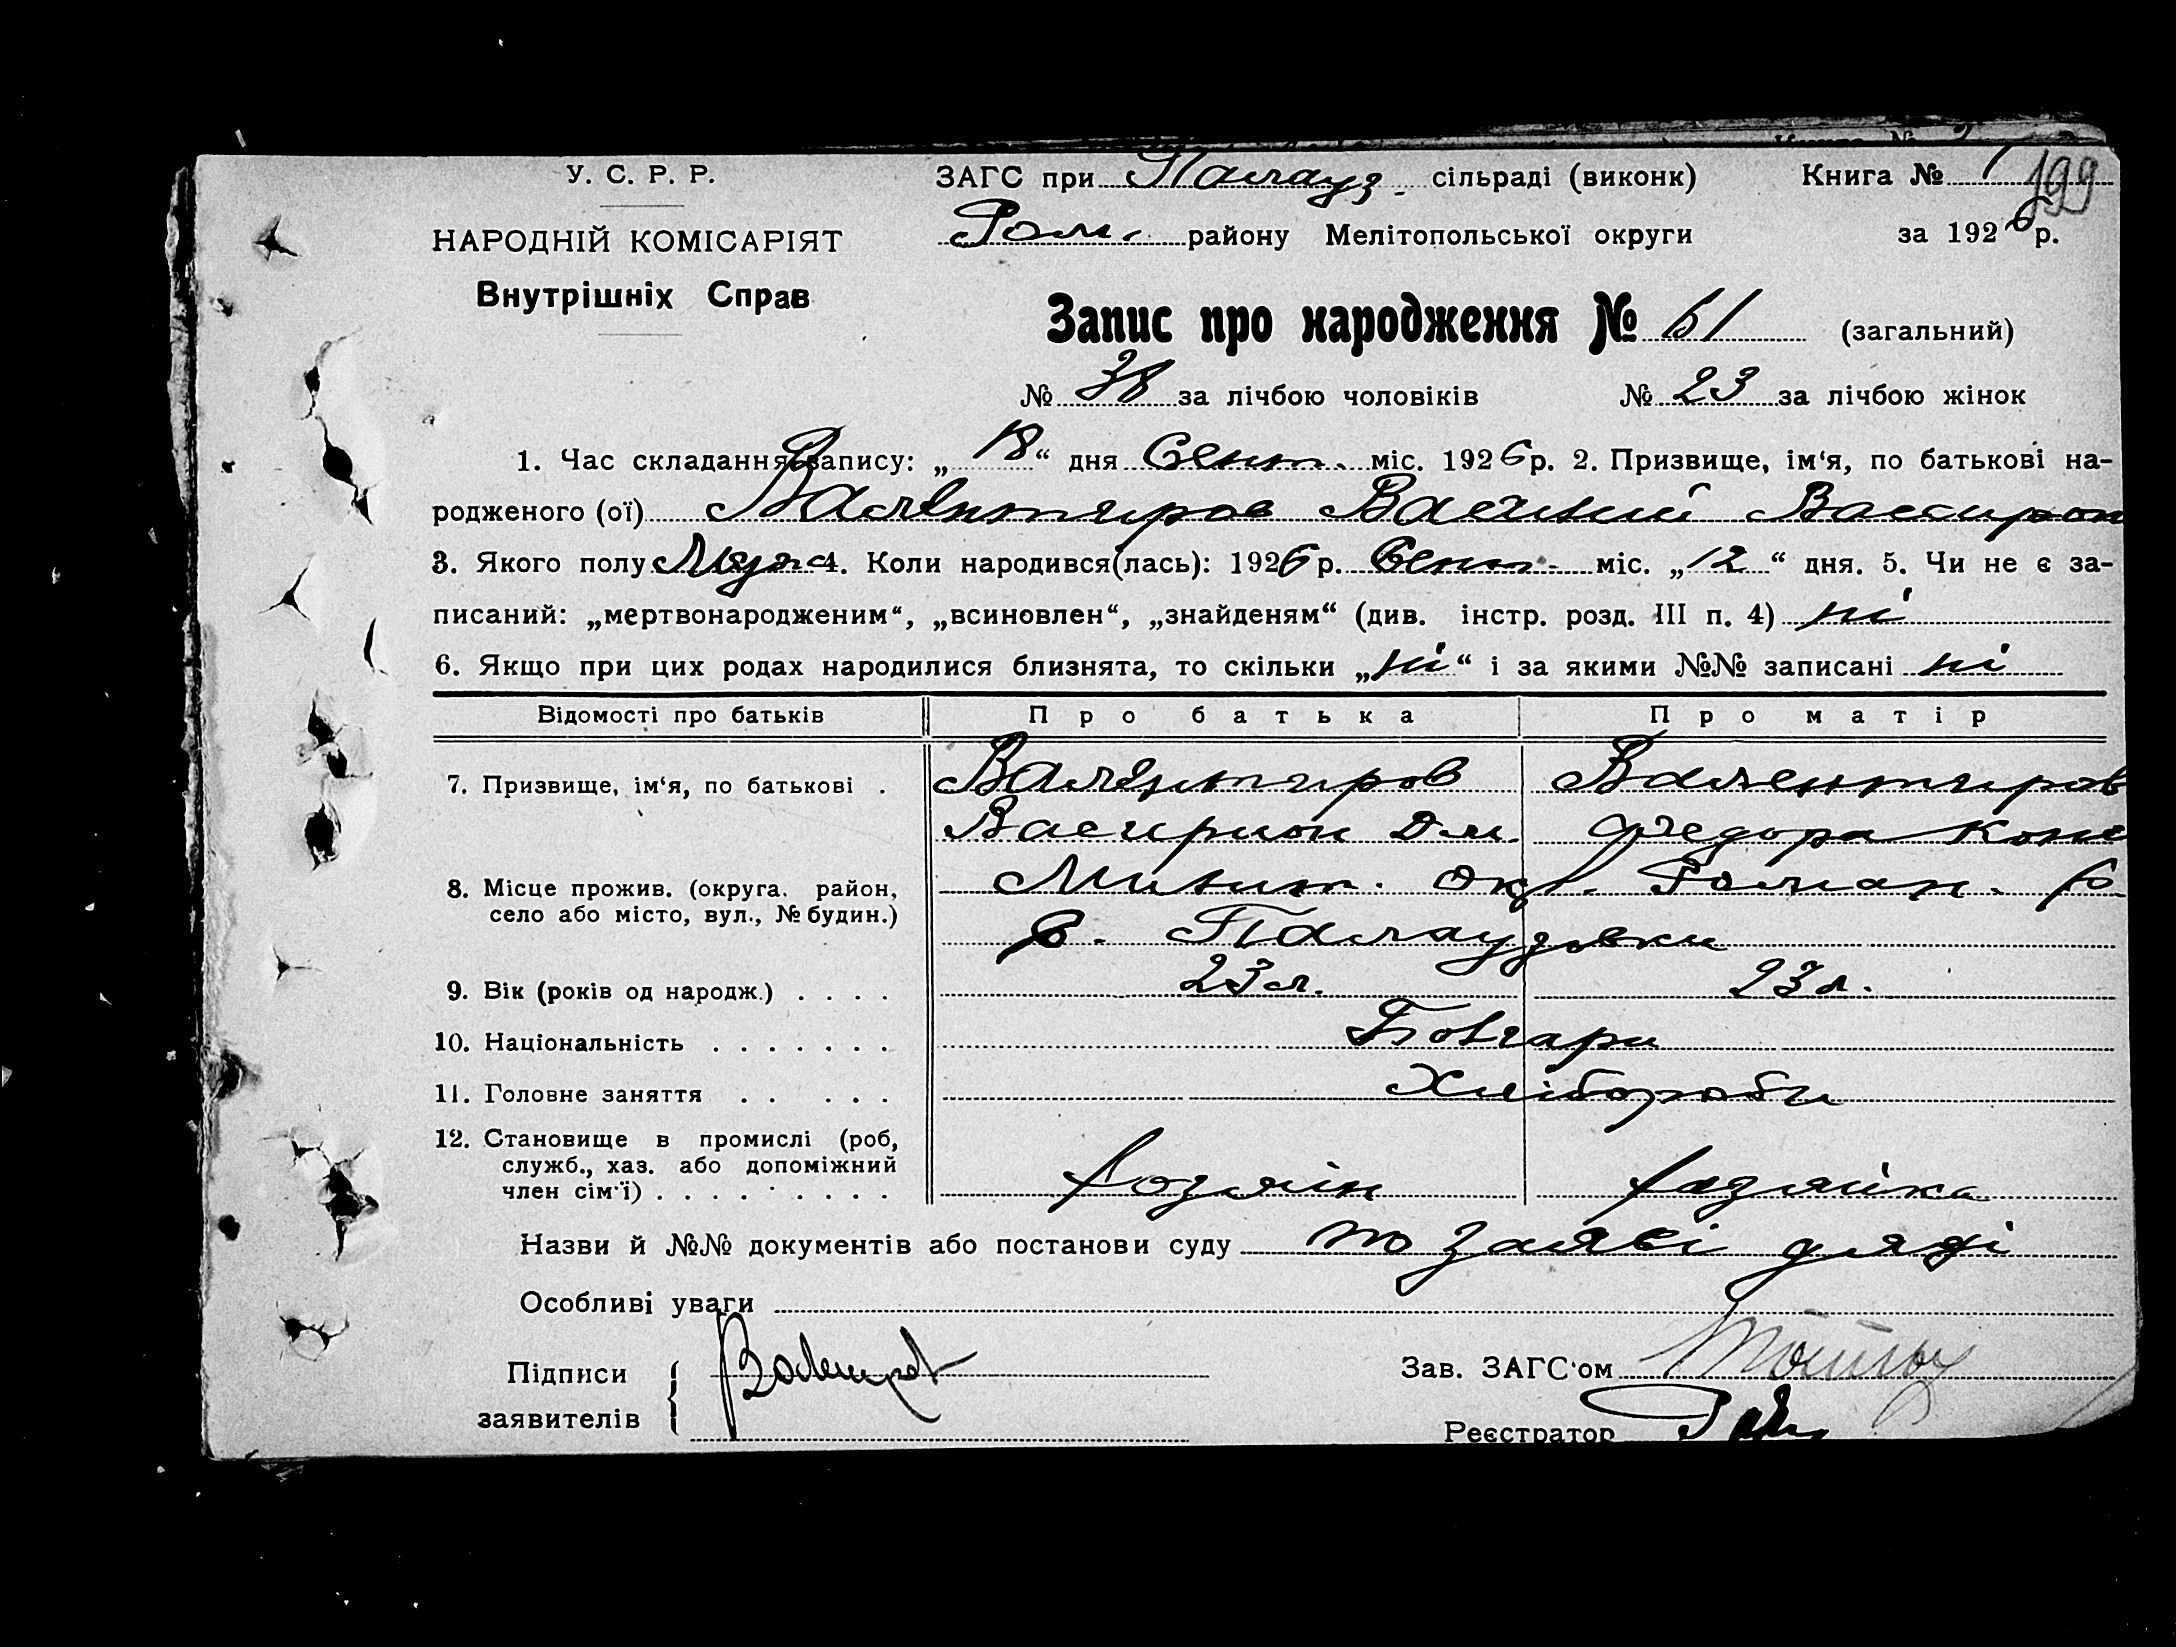 У. С. Р. Р.
НАРОДНІЙ КОМІСАРІЯТ
Внутрішніх Справ
ЗАГС при Палауз. сільраді (виконк)
Книга № 1
199
Ром. району Мелітопольської округи
за 1926 р.
Запис про народження № 61 (загальний)
№ 38 за лічбою чоловіків № 23 за лічбою жінок
1. Час складання запису: „ 18 “ дня Сент. міс. 1926 р. 2. Призвище, ім‘я, по батькові на-
родженого (ої) Валентиров
3. Якого полу Муж 4. Коли народився(лась): 1926 р. Сент. міс. „ 12 “ дня. 5. Чи не є за-
писаний: „мертвонародженим“, „всиновлен“, „знайденям“ (див. інстр. розд. III п. 4) ні
6. Якщо при цих родах народилися близнята, то скільки „ ні “ і за якими №№ записані ні
Відомості про батьків Про батька Про матір
7. Призвище, ім‘я, по батькові . Валентиров Валентиров
Дм. Федора Конс
8. Місце прожив. (округа, район, Окр. Роман.
село або місто, вул., № будин.) с. Палаузовки
9. Вік (років од народж.) . . . . 23 л. 23 л.
10. Національність . . . . . . . Бовгари
11. Головне заняття . . . . . Хлібороби
12. Становище в промислі (роб,
служб., хаз. або допоміжний
член сім‘ї) . . . . . . . . . хозяін хазяйка
Назви й №№ документів або постанови суду по заяві дяді
Особливі уваги
Підписи
заявителів
Зав. ЗАГС‘ом
Реєстратор